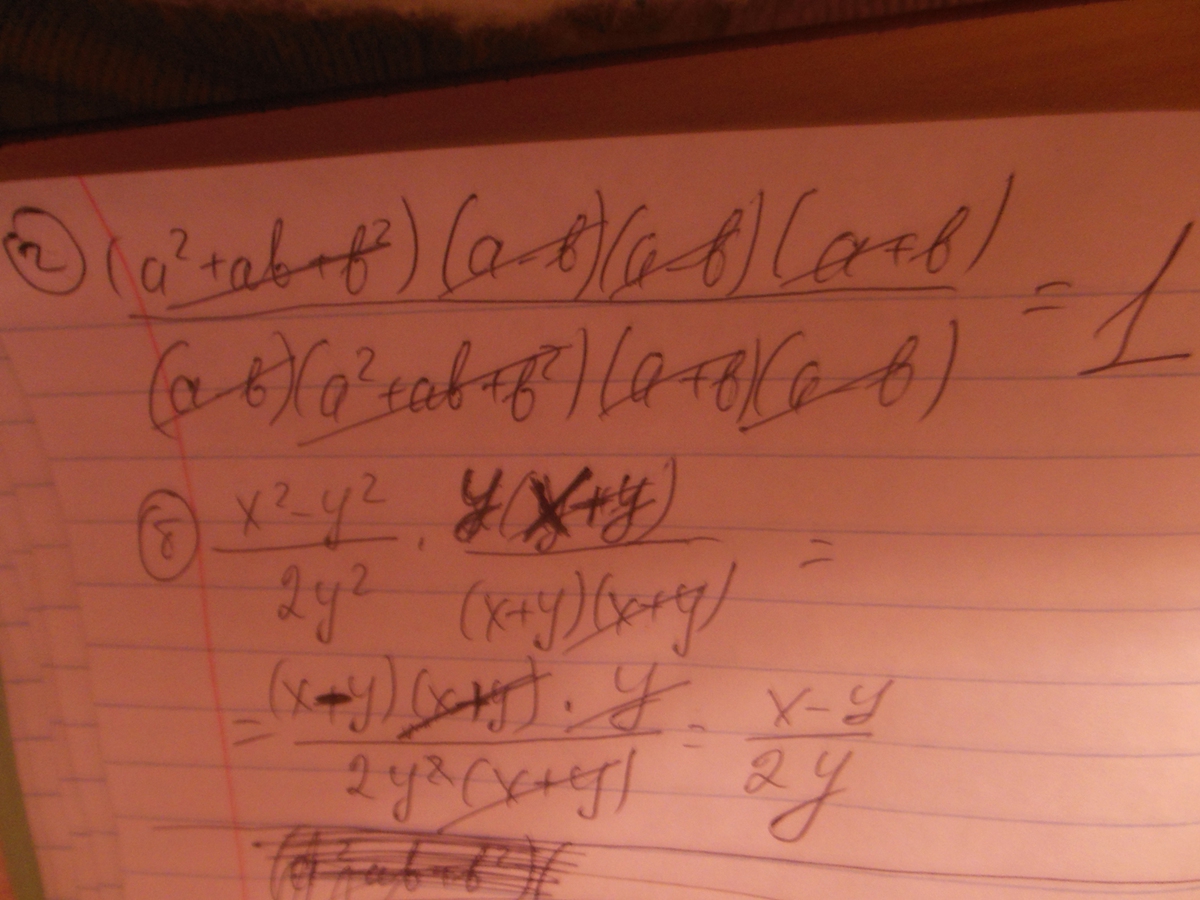 2) (a²+ab+b²)(a-b)(a-b)(a+b) / (a-b)(a²+ab+b²)(a+b)(a-b) = 1
8) x²-y² / 2y² · y(x+y) / (x+y)(x+y) =
= (x-y)(x+y)·y / 2y²(x+y) = x-y / 2y